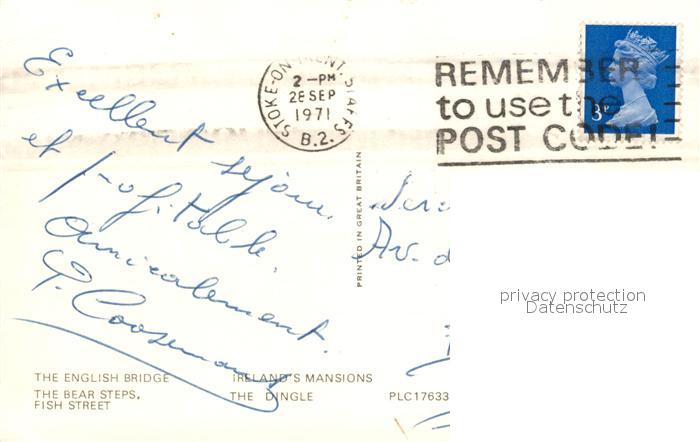 Excellent séjour
et profitable.
Amicalement.
P. Coosemans
STOKE-ON-TRENT. STAFFS
2-PM
28 SEP
1971
B.2.
REMEMBER
to use the
POST CODE!
3P
PRINTED IN GREAT BRITAIN
Av. d
privacy protection
Datenschutz
THE ENGLISH BRIDGE
IRELAND'S MANSIONS
THE BEAR STEPS,
FISH STREET
THE DINGLE
PLC17633